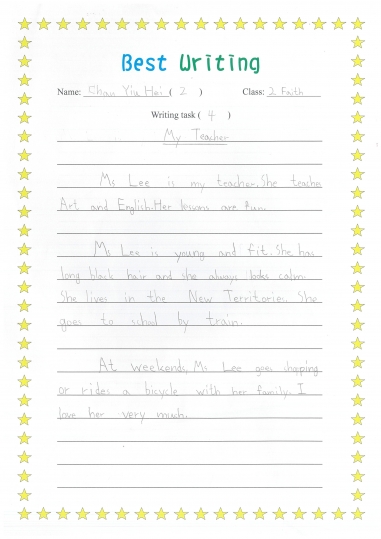 Best Writing
Name: Chan Yiu Hei ( 2 ) Class: 2 Faith
Writing task ( 4 )
My Teacher
Ms Lee is my teacher. She teache
Art and English. Her lessons are fun.
Ms Lee is young and fit. She has
long black hair and she always looks calm.
She lives in the New Territories. She
goes to school by train.
At weekends, Ms Lee goes shopping
or rides a bicycle with her family. I
love her very much.